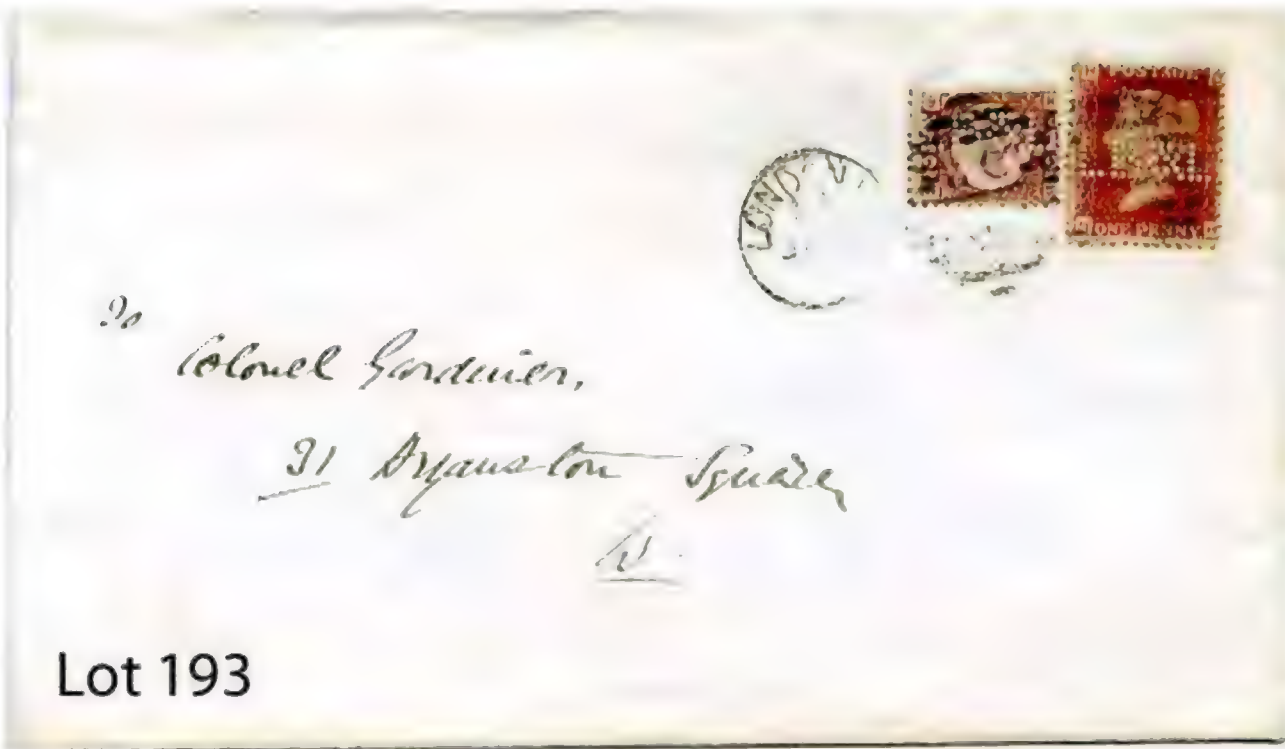 POSTAGE
ONE PENNY
LONDON
To
Colonel Gardiner,
31 Bryanston Square
W.
Lot 193